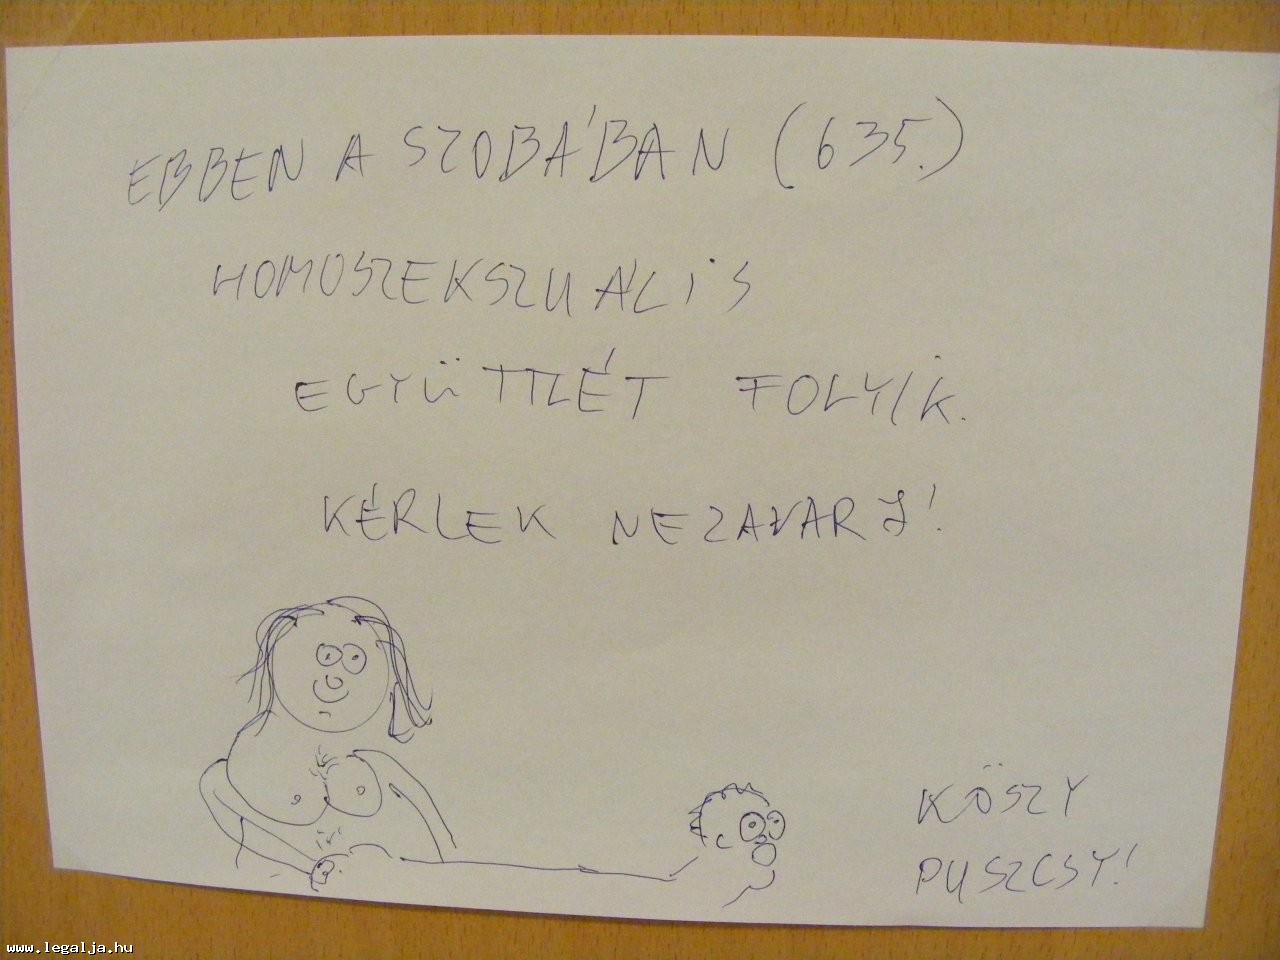 EBBEN A SZOBÁBAN (635.)
HOMOSZEKSZUÁLIS
EGYÜTTLÉT FOLYIK.
KÉRLEK NE ZAVARJ!
KÖSZY
PUSZCSY!
www.legalja.hu